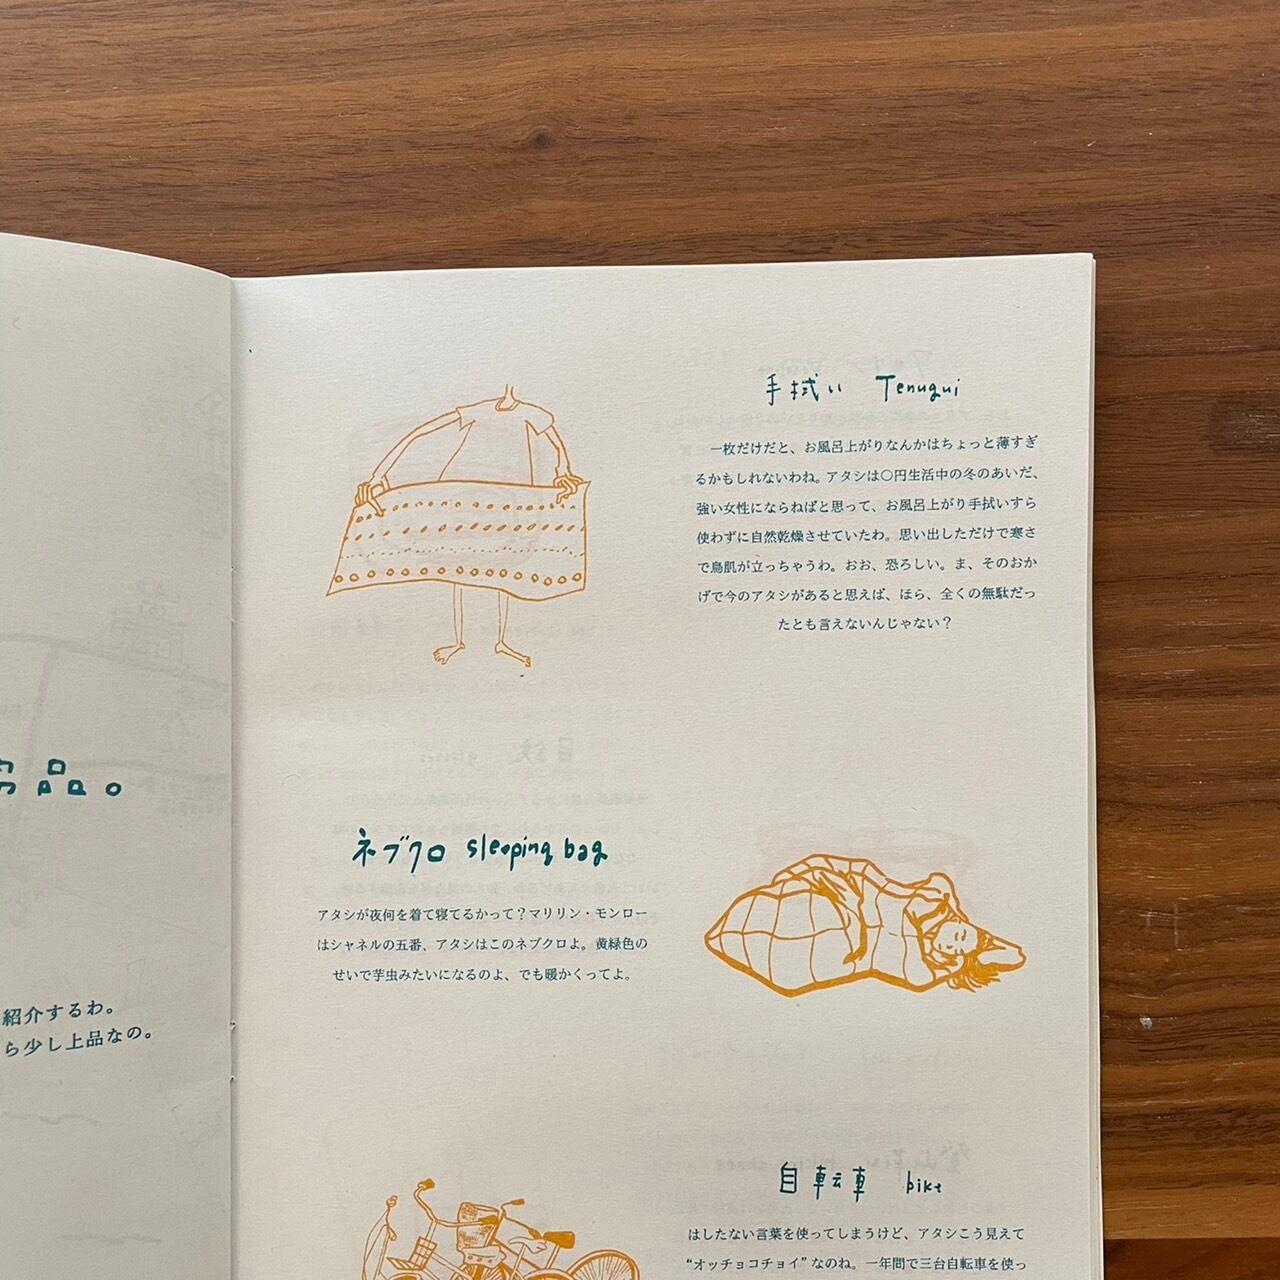 品。
紹介するわ。
ら少し上品なの。
手拭い Tenugui
一枚だけだと、お風呂上がりなんかはちょっと薄すぎ
るかもしれないわね。アタシは〇円生活中の冬のあいだ、
強い女性にならねばと思って、お風呂上がり手拭いすら
使わずに自然乾燥させていたわ。思い出しただけで寒さ
で鳥肌が立っちゃうわ。おお、恐ろしい。ま、そのおか
げで今のアタシがあると思えば、ほら、全くの無駄だっ
たとも言えないんじゃない？
ネブクロ sleeping bag
アタシが夜何を着て寝てるかって？マリリン・モンロー
はシャネルの五番、アタシはこのネブクロよ。黄緑色の
せいで芋虫みたいになるのよ、でも暖かくってよ。
自転車 bike
はしたない言葉を使ってしまうけど、アタシこう見えて
“オッチョコチョイ”なのね。一年間で三台自転車を使っ